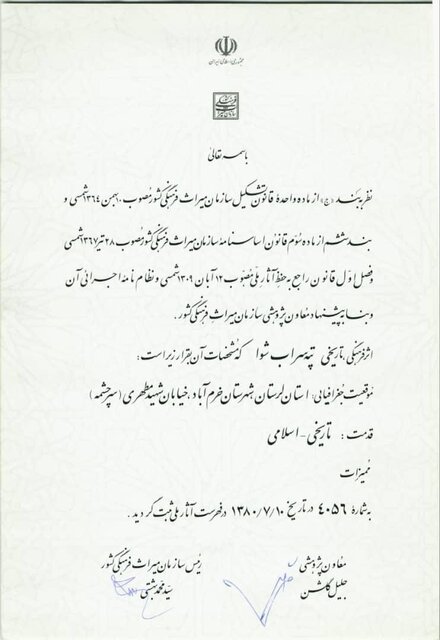 جمهوری اسلامی ایران
باسمه تعالی
نظر به بند «ج» از ماده واحدهٔ قانون تشکیل سازمان میراث فرهنگی کشور مصوب ۱۰ بهمن ۱۳۶۴ شمسی و
بند ششم از ماده سوم قانون اساسنامهٔ سازمان میراث فرهنگی کشور مصوب ۲۸ تیر ۱۳۶۷ شمسی
و فصل اول قانون راجع به حفظ آثار ملی مصوب ۱۲ آبان ۱۳۰۹ شمسی و نظام نامهٔ اجرائی آن
و بنا به پیشنهاد معاون پژوهشی سازمان میراث فرهنگی کشور.
اثر فرهنگی، تاریخی تپه سراب شوا که مشخصات آن بقرار زیر است:
موقعیت جغرافیایی: استان لرستان شهرستان خرم آباد، خیابان شهید مطهری (سر چشمه)
قدمت: تاریخی - اسلامی
ممیزات
به شمارهٔ ۴۰۵۶ در تاریخ ۱۳۸۰/۷/۱۰ در فهرست آثار ملی ثبت گردید.
معاون پژوهشی
جلیل گلشن
رئیس سازمان میراث فرهنگی کشور
سید محمد بهشتی